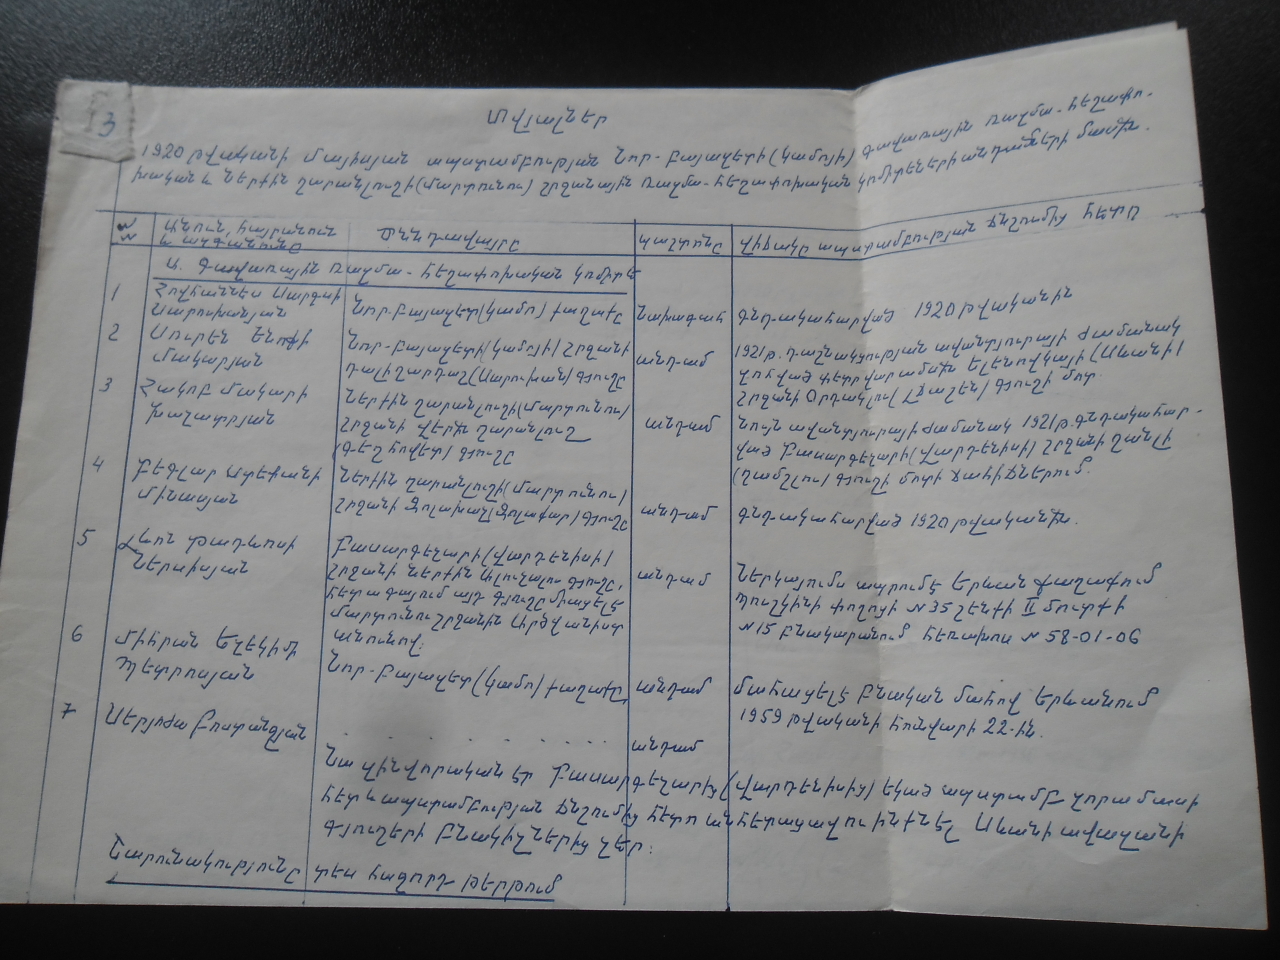 3
Տվյալներ
1920 թվականի մայիսյան ապստամբության Նոր-Բայազետի (Կամոյի) գավառային ռազմա-հեղափո-
խական և Ներքին Ղարանլուղի (Մարտունու) շրջանային ռազմա-հեղափոխական կոմիտեների անդամների մասին.
№№ Անուն, հայրանուն և ազգանունը Ծննդավայրը Կաշտոնը Վիճակը ապստամբության ճնշումից հետո
Ա. Գավառային ռազմա-հեղափոխական կոմիտե
1 Հովհաննես Սարգսի Սարուխանյան Նոր-Բայազետ (Կամո) քաղաքը Նախագահ Գնդակահարված 1920 թվականին
2 Սուրեն Ենոքի Մակարյան Նոր-Բայազետի (Կամոյի) շրջանի Դալիղարդաշ (Սարուխան) գյուղը անդամ 1921թ. դաշնակցության ավանտյուրայի ժամանակ զոհված փետրվար ամսին Ելենովկայի (Սևանի) շրջանի Օրդակլու (Լճաշեն) գյուղի մոտ.
3 Հակոբ Մակարի Խաչատրյան Ներքին Ղարանլուղի (Մարտունու) շրջանի Վերին Ղարանլուղ (Գեղհովիտ) գյուղը անդամ նույն ավանտյուրայի ժամանակ 1921թ. գնդակահար-
ված Բասարգեչարի (Վարդենիսի) շրջանի Ղանլի (Ղամշլու) գյուղի մոտի ճահիճներում.
4 Բեգլար Ստեփանի Մինասյան Ներքին Ղարանլուղի (Մարտունու) շրջանի Զոլախաչ (Զոլաքար) գյուղը անդամ Գնդակահարված 1920 թվականին.
5 Լևոն Թադևոսի Ներսիսյան Բասարգեչարի (Վարդենիսի) շրջանի Ներքին Ալուչալու գյուղը, հետագայում այդ գյուղը միացել է Մարտունու շրջանին Արծվանիստ անունով: անդամ Ներկայումս ապրում է Երևան քաղաքում Պուշկինի փողոցի №35 շենքի II մուտքի №15 բնակարանում հեռախոս №58-01-06
6 Միհրան Եղեկիմի Պետրոսյան Նոր-Բայազետ (Կամո) քաղաքը անդամ Մահացել է բնական մահով Երևանում 1959 թվականի հունվարի 22-ին.
7 Սերյոժա Բոստանջյան . . . . . . . . . . անդամ
Նա զինվորական էր Բասարգեչարից (Վարդենիսից) եկած ապստամբ զորամասի
հետ և ապստամբության ճնշումից հետո անհետացավ ու ինքն էլ Սևանի ավազանի
գյուղերի բնակիչներից չէր:
Շարունակությունը տես հաջորդ թերթում